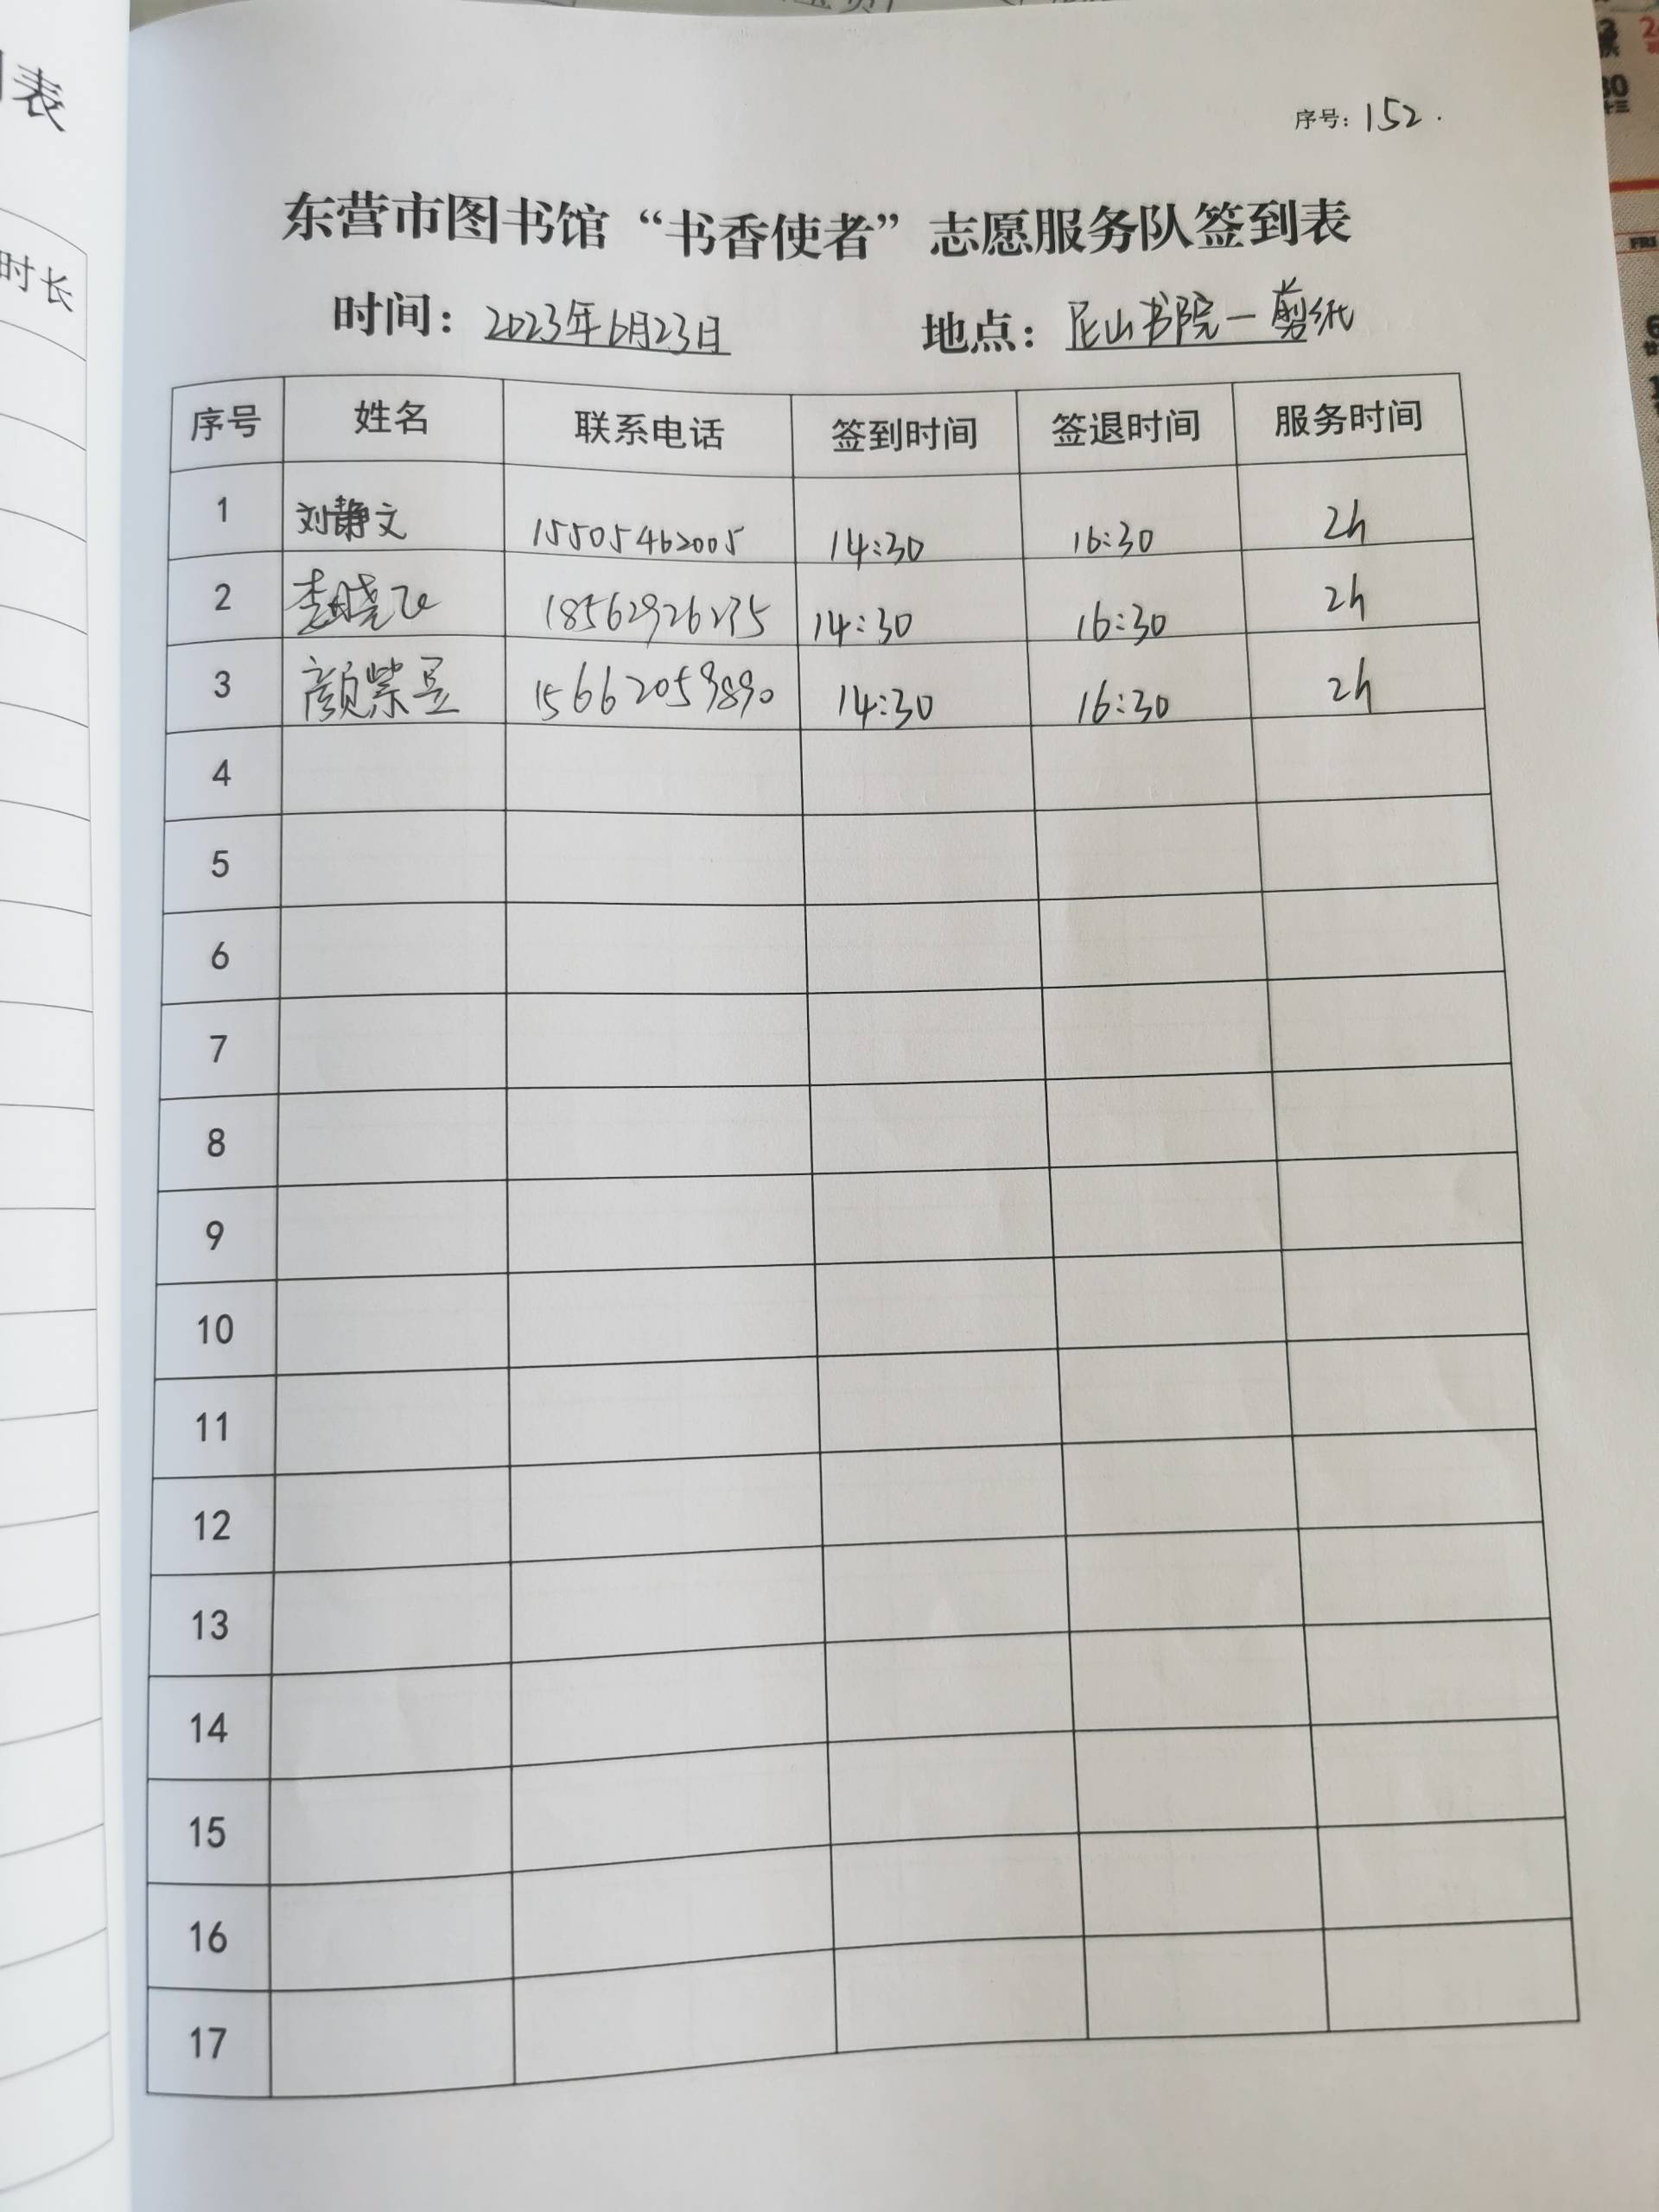 表
时长
序号: 152.
东营市图书馆“书香使者”志愿服务队签到表
时间: 2023年6月23日 地点: 尼山书院一剪纸
序号 姓名 联系电话 签到时间 签退时间 服务时间
1 刘静文 15505462005 14:30 16:30 2h
2 李晓飞 14:30 16:30 2h
3 颜紫昱 15662059890 14:30 16:30 2h
4
5
6
7
8
9
10
11
12
13
14
15
16
17